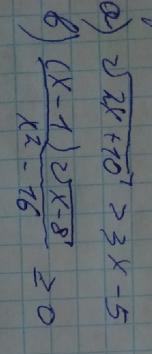 а) √(2x+10) > 3x-5
б) ((x-1)√(x-8))/(x²-16) ≥ 0